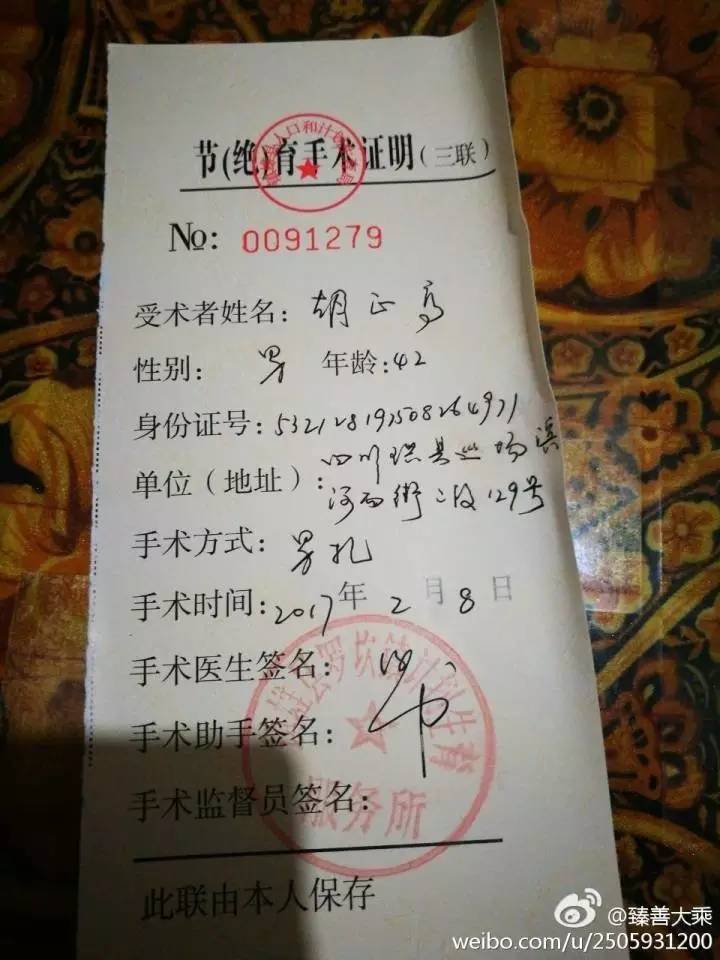 节(绝)育手术证明(三联)
人口和计划
No: 0091279
受术者姓名: 胡正高
性别: 男 年龄: 42
身份证号: 532128197508264971
单位(地址): 四川珙县巡场滨
河西街二段129号
手术方式: 男扎
手术时间: 2017年2月8日
手术医生签名:
手术助手签名:
手术监督员签名:
罗坎镇计划生育
服务所
此联由本人保存
@臻善大乘
weibo.com/u/2505931200